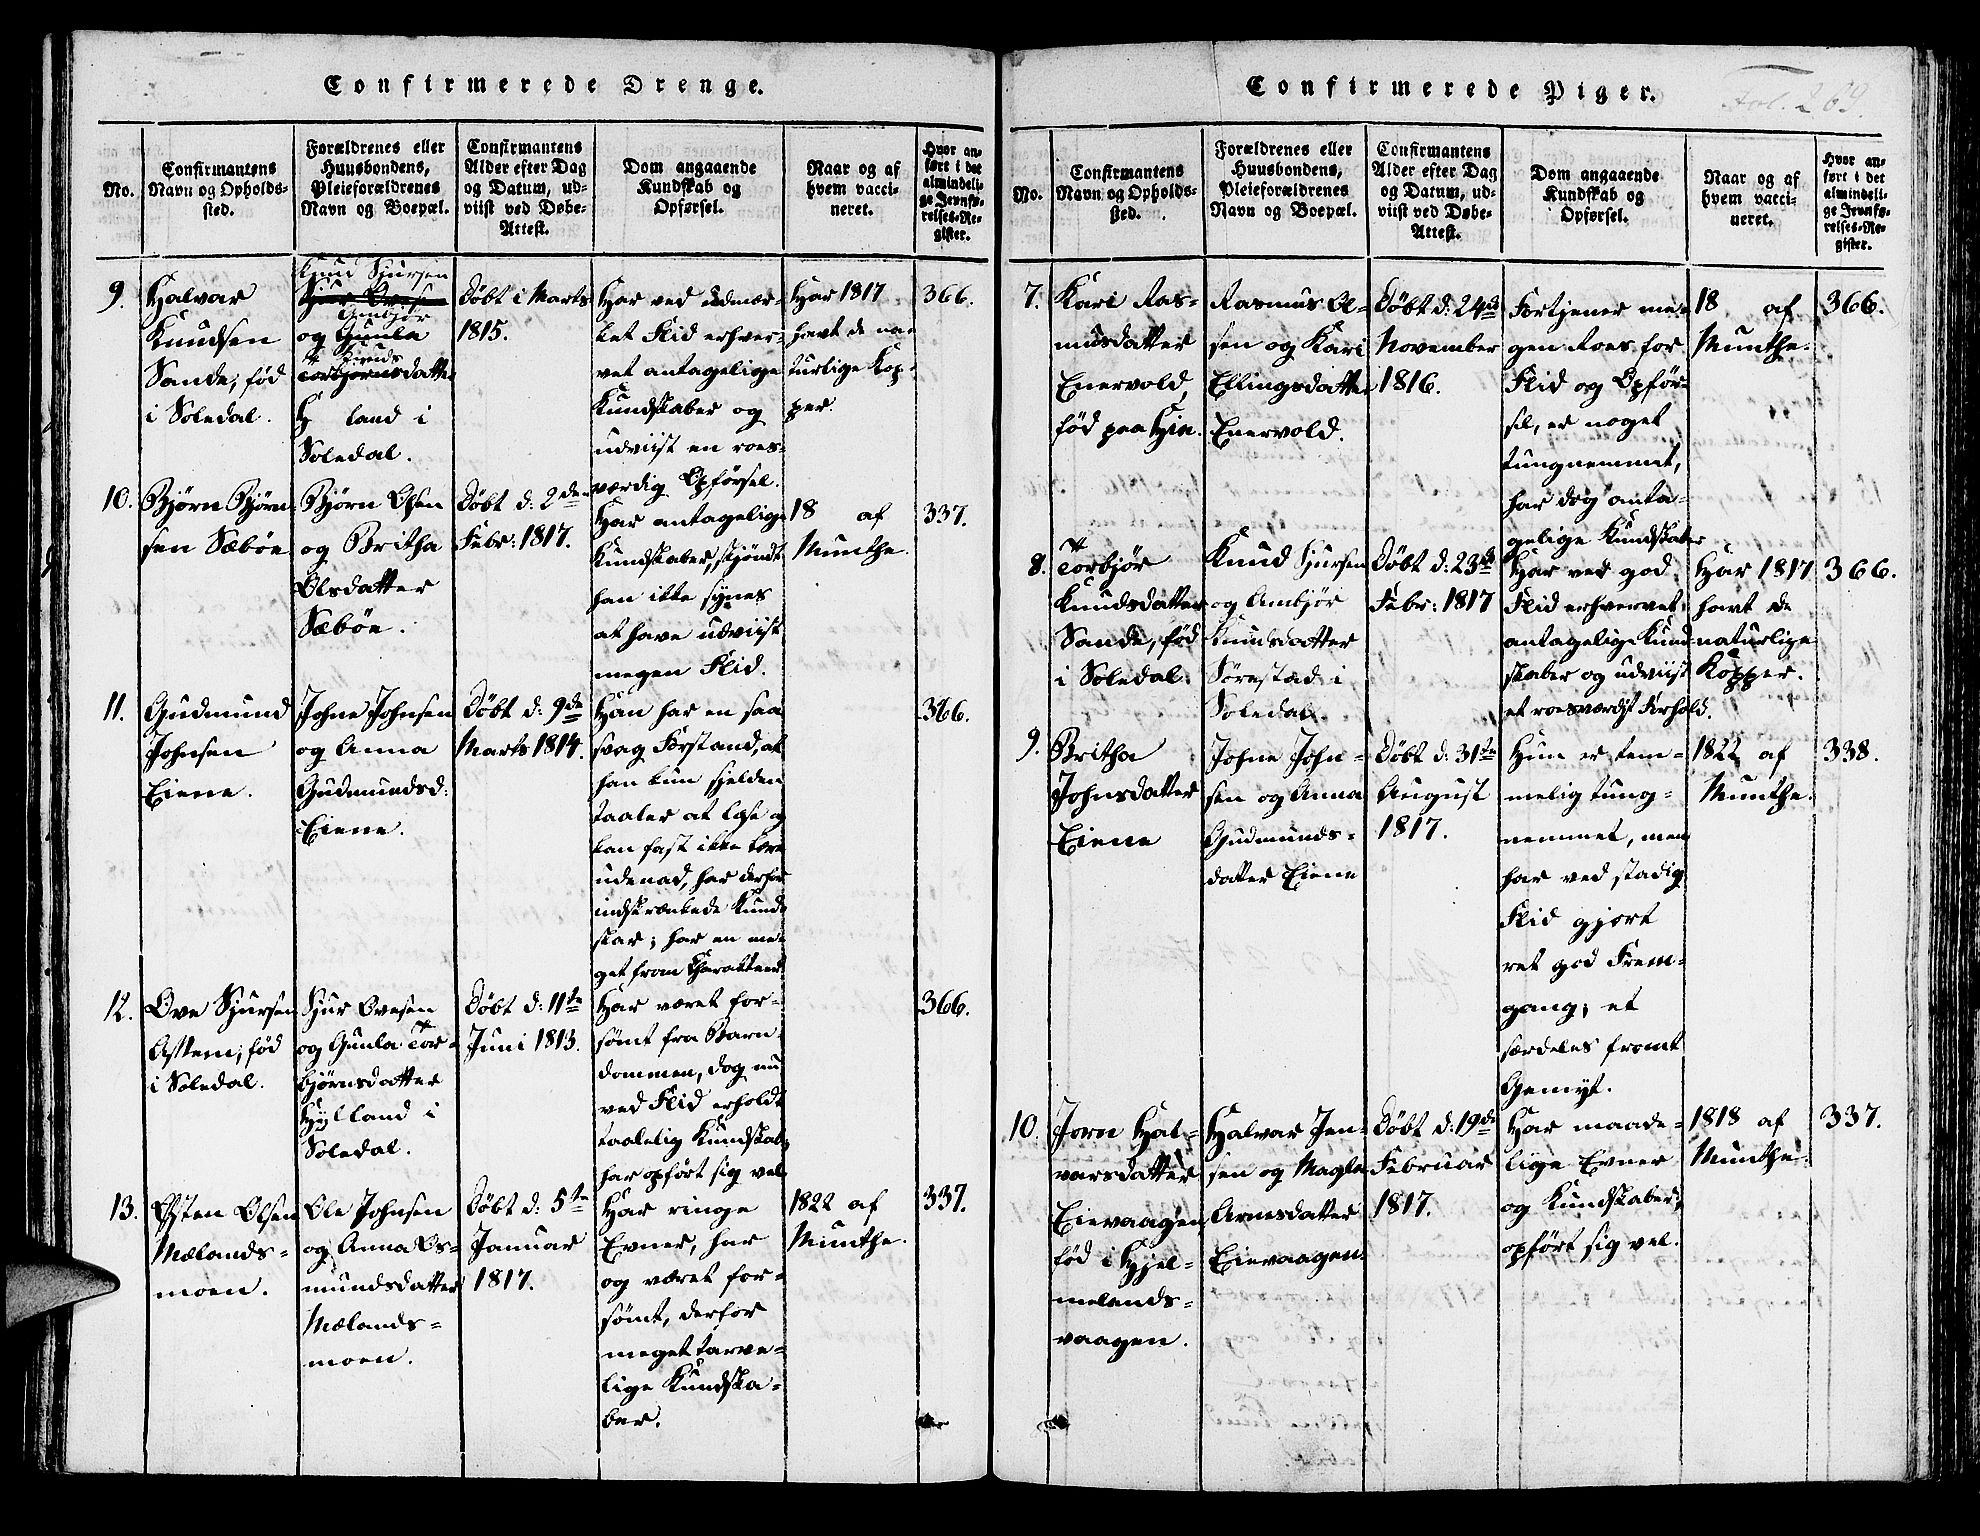 Confirmerede Drenge.
No.
Confirmantens
Navn og Opholds-
sted.
Forældrenes eller
Huusbondens,
Pleieforældrenes
Navn og Boepæl.
Confirmantens
Alder efter Dag
og Datum, ud-
viist ved Døbe-
Attest.
Dom angaaende
Kundskab og
Opførsel.
Naar og af
hvem vacci-
neret.
Hvor an-
ført i det
almindeli-
ge Jevnfø-
relses-Re-
gister.
9.
Halvar
Knudsen
Sande, fød
i Soledal.
Knud Sjursen
Sjur Ovesen
Ambjør
og Gunla
Knuds
Torbjørnsdatter
H land i
Soledal.
Døbt i Marts
1815.
Har ved udmær-
ket Flid erhver-
vet antagelige
Kundskaber og
udviist en roes-
værdig Opførsel.
Har 1817
havt de na-
turlige Kop-
per.
366.
10.
Bjørn Bjørn-
sen Sæbøe
Bjørn Olsen
og Britha
Olsdatter
Sæbøe.
Døbt d: 2den
Febr: 1817.
Har antagelige
Kundskaber, skjøndt
han ikke synes
at have udviist
megen Flid.
18 af
Munthe.
337.
11.
Gudmund
Johnsen
Eiene.
Johne Johnsen
og Anna
Gudmundsd:
Eiene.
Døbt d: 9de
Marts 1814.
Han har en saa
svag Forstand, at
han kun sjelden
taaler at læse og
kan fast ikke lære
udenad, har derfor
indskrænkede Kund-
skar; har en me-
get from Charakteer.
366.
12.
Ove Sjursen
Østern, fød
i Soledal.
Sjur Ovesen
og Gunla Tor-
bjørnsdatter
Hylland i
Soledal.
Døbt d: 11te
Juni 1813.
Har været for-
sømt fra Barn-
dommen, dog nu
ved Flid erholdt
taalelig Kundskab,
har opført sig vel
366.
13.
Østen Olsen
Mælands-
moen.
Ole Johnsen
og Anna Os-
mundsdatter
Mælands-
moen.
Døbt d: 5te
Januar
1817.
Har ringe
Evner, har
og været for-
sømt, derfor
meget tarve-
lige Kundska-
ber.
1822 af
Munthe.
337.
Confirmerede Piger.
Fol. 269.
No.
Confirmantens
Navn og Opholds-
sted.
Forældrenes eller
Huusbondens,
Pleieforældrenes
Navn og Boepæl.
Confirmantens
Alder efter Dag
og Datum, ud-
viist ved Døbe-
Attest.
Dom angaaende
Kundskab og
Opførsel.
Naar og af
hvem vacci-
neret.
Hvor an-
ført i det
almindeli-
ge Jevnfø-
relses-Re-
gister.
7.
Kari Ras-
musdatter
Enervold,
fød paa Hia.
Rasmus Ol-
sen og Kari
Ellingsdatter
Enervold.
Døbt d: 24de
November
1816.
Fortjener me-
gen Roes for
Flid og Opfør-
sel, er noget
tungnemmet,
har dog anta-
gelige Kundskaber
18 af
Munthe.
366.
8.
Torbjør
Knudsdatter
Sande, fød
i Soledal.
Knud Sjursen
og Ambjør
Knudsdatter
Sørestad i
Soledal.
Døbt d: 23de
Febr: 1817
Har ved god
Flid erhvervet
antagelige Kund-
skaber og udviist
et roesværdigt Forhold.
Har 1817
havt de
naturlige
Kopper.
366.
9.
Britha
Johnsdatter
Eiene
Johne John-
sen og Anna
Gudmunds-
datter Eiene
Døbt d: 31te
August
1817.
Hun er tem-
melig tung-
nemmet, men
har ved stadig
Flid gjort
ret god Frem-
gang; et
særdeles fromt
Gemyt.
1822 af
Munthe.
338.
10.
Jorn Hal-
varsdatter
Eievaagen,
fød i Hjel-
melands-
vaagen.
Halvar Jen-
sen og Magla
Arnesdatter
Eievaagen.
Døbt d: 19de
Februar
1817.
Har maade-
lige Evner
og Kundskaber,
opført sig vel.
1818 af
Munthe.
337.